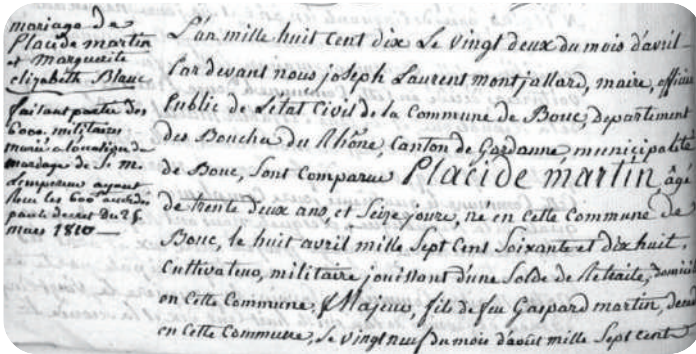 mariage de
Placide martin
et Marguerite
elizabeth Blanc
faisant partie des
6000 militaires
mariés à l'occasion du
mariage de S. m.
L'empereur ayant
tous les 600
par le decret du 25
mars 1810 —
L'an mille huit Cent dix Le vingt deux du mois d'avril
Par devant nous joseph Laurent montjallard, maire, officier
Public de L'etat Civil de la Commune de Bouc, departement
des Bouches du Rhône, Canton de Gardanne, municipalité
de Bouc, sont Comparus Placide martin, âgé
de trente deux ans, et Seize jours, né en cette Commune de
Bouc, le huit avril mille Sept Cent Soixante et dix huit,
Cultivateur, militaire jouissant d'une Solde de Retraite, domicil
en Cette Commune, Majeur, fils de feu Gaspard martin, decedé
en cette Commune, Le vingt neuf du mois d'août mille Sept cent